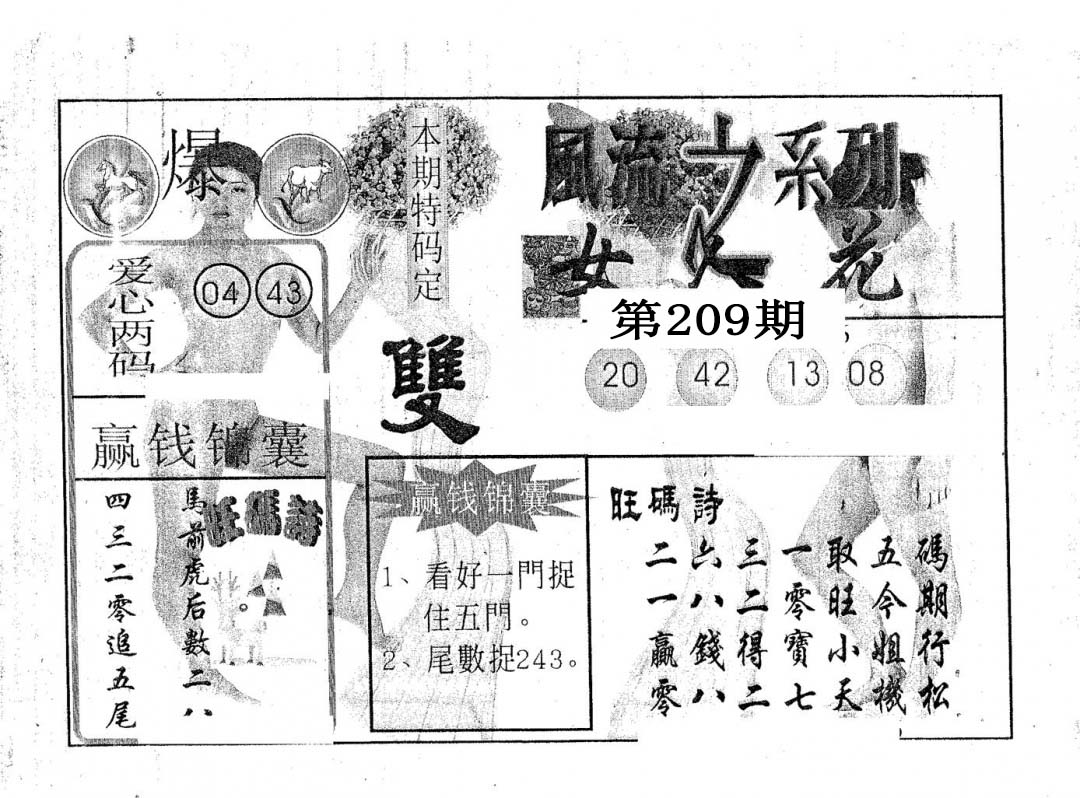 爆
爱心两码
04 43
本期特码定
雙
風流之系列
女人花
第209期
20 42 13 08
赢钱锦囊
旺碼詩
馬前虎后數二八。
四三二零追五尾
赢钱锦囊
1、看好一門捉
住五門。
2、尾數捉243。
旺碼詩
碼期行松
五今姐機
取旺小天
一零寶七
三二得二
六八錢八
二一贏零